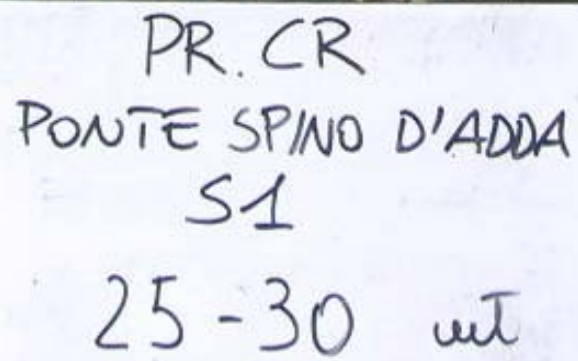 PR. CR
PONTE SPINO D'ADDA
S1
25-30 mt